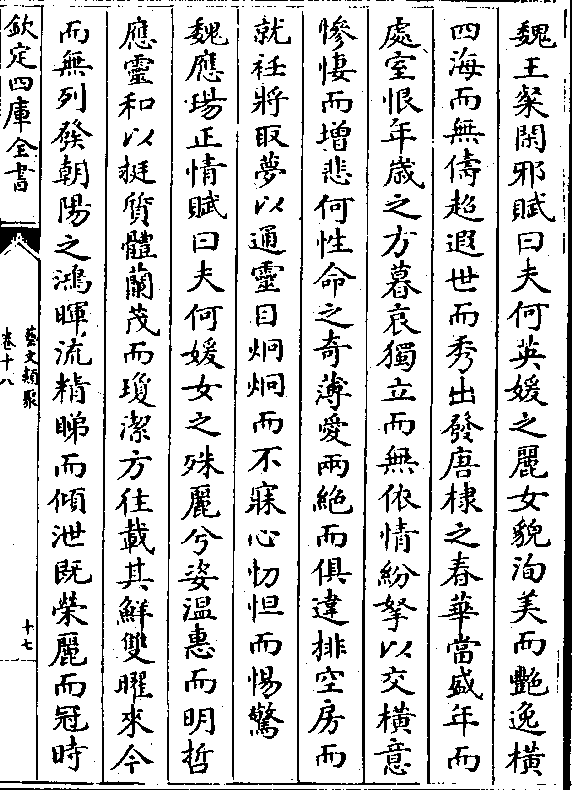 魏王粲閑邪賦曰夫何英媛之麗女貌洵美而艶逸橫
四海而無儔超遐世而秀出發唐棣之春華當盛年而
處室恨年歲之方暮哀獨立而無依情紛拏以交橫意
慘悽而增悲何性命之奇薄愛兩絶而俱違排空房而
就衽將取夢以通靈目炯炯而不寐心忉怛而惕驚
魏應瑒正情賦曰夫何媛女之殊麗兮姿溫惠而明哲
應靈和以挺質體蘭茂而瓊潔方往載其鮮雙曜來今
而無列發朝陽之鴻暉流精睇而傾泄既榮麗而冠時
欽定四庫全書
藝文類聚
卷十八
十七